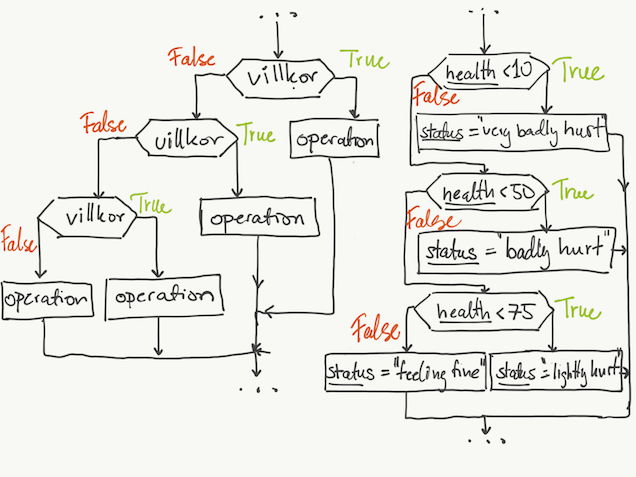 ...
False
villkor
True
False
villkor
True
operation
False
villkor
True
operation
operation
operation
...
...
health <10
True
False
status ="very badly hurt"
health <50
True
False
status ="badly hurt"
health <75
True
False
status ="feeling fine"
status ="lightly hurt"
...